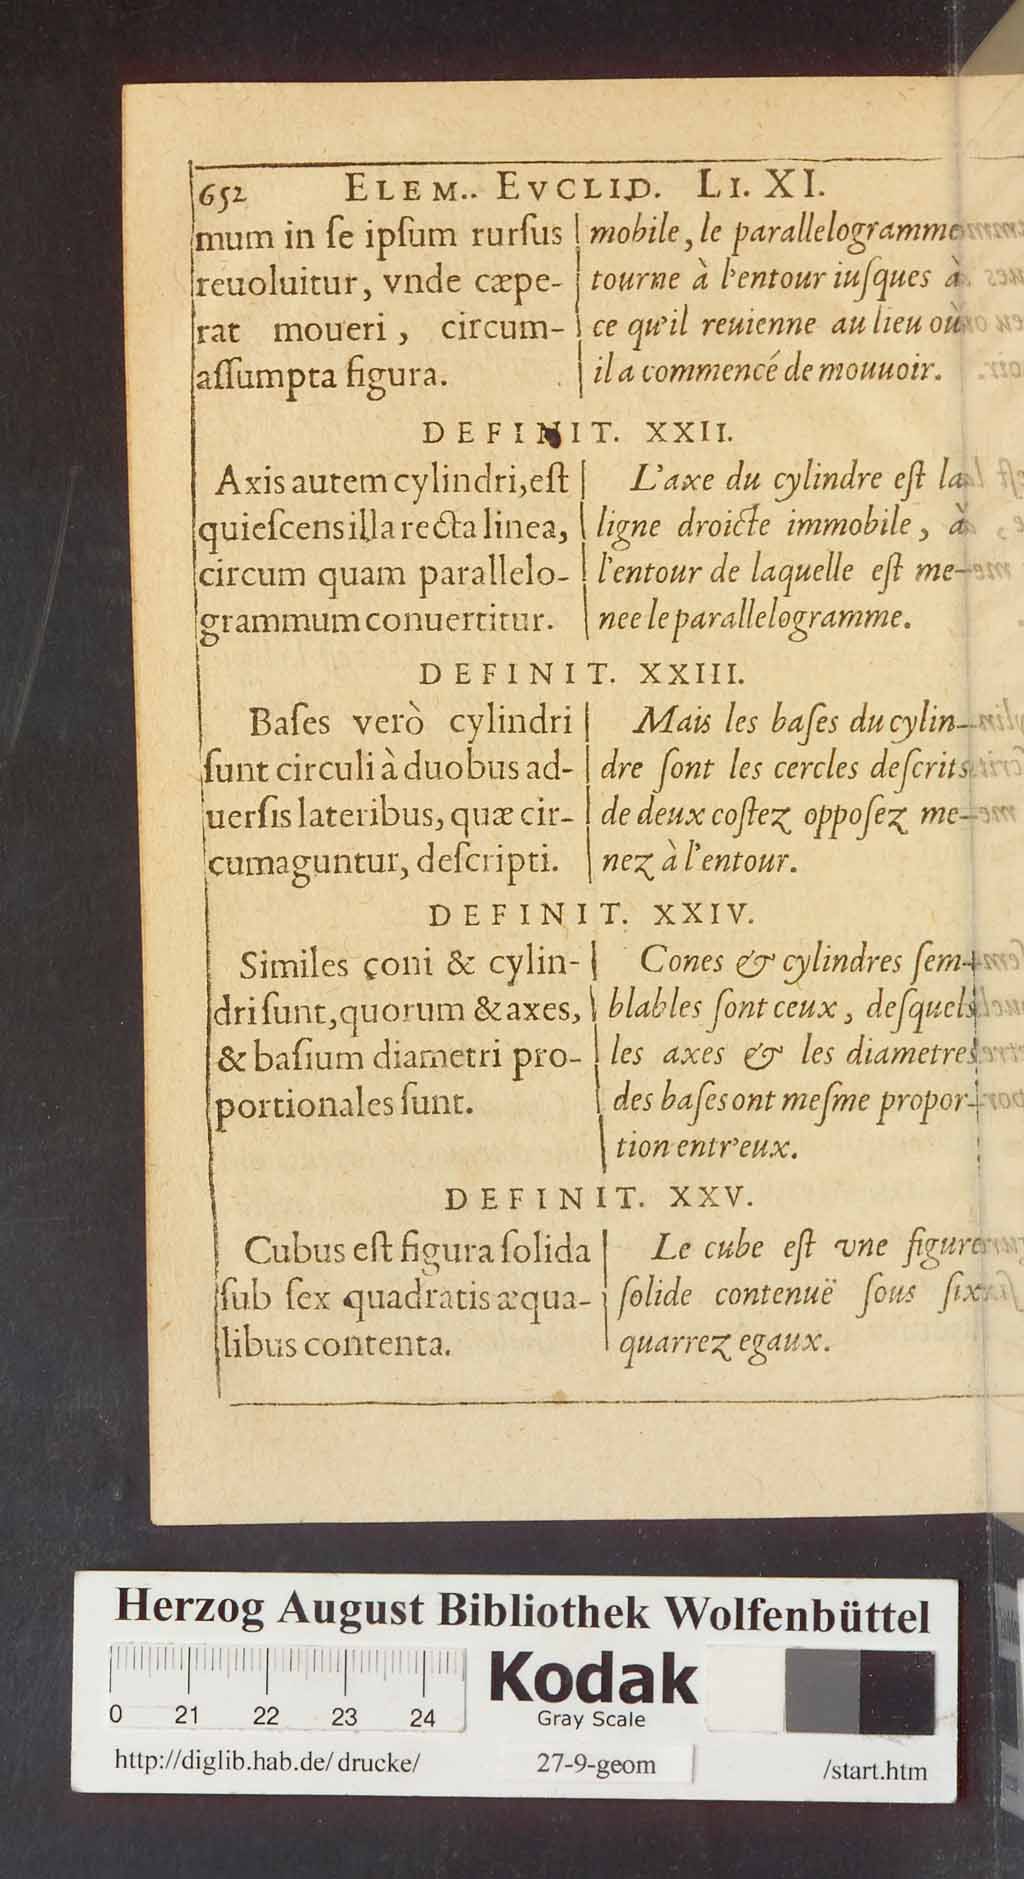 652 ELEM.. EVCLID. LI. XI.
mum in ſe ipſum rurſus
reuoluitur, vnde cæpe-
rat moueri, circum-
aſſumpta figura.
mobile, le parallelogramme
tourne à l'entour iuſques à
ce qu'il reuienne au lieu où
il a commencé de mouuoir.
DEFINIT. XXII.
Axis autem cylindri, eſt
quieſcens illa recta linea,
circum quam parallelo-
grammum conuertitur.
L'axe du cylindre eſt la
ligne droicte immobile, à
l'entour de laquelle eſt me-
nee le parallelogramme.
DEFINIT. XXIII.
Baſes verò cylindri
ſunt circuli à duobus ad-
uerſis lateribus, quæ cir-
cumaguntur, deſcripti.
Mais les baſes du cylin-
dre ſont les cercles deſcrits
de deux coſtez oppoſez me-
nez à l'entour.
DEFINIT. XXIV.
Similes coni & cylin-
dri ſunt, quorum & axes,
& baſium diametri pro-
portionales ſunt.
Cones & cylindres ſem-
blables ſont ceux, deſquels
les axes & les diametres
des baſes ont meſme propor-
tion entr'eux.
DEFINIT. XXV.
Cubus eſt figura ſolida
ſub ſex quadratis æqua-
libus contenta.
Le cube eſt vne figure
ſolide contenuë ſous ſix
quarrez egaux.
Herzog August Bibliothek Wolfenbüttel
0 21 22 23 24
Kodak
Gray Scale
http://diglib.hab.de/drucke/ 27-9-geom /start.htm